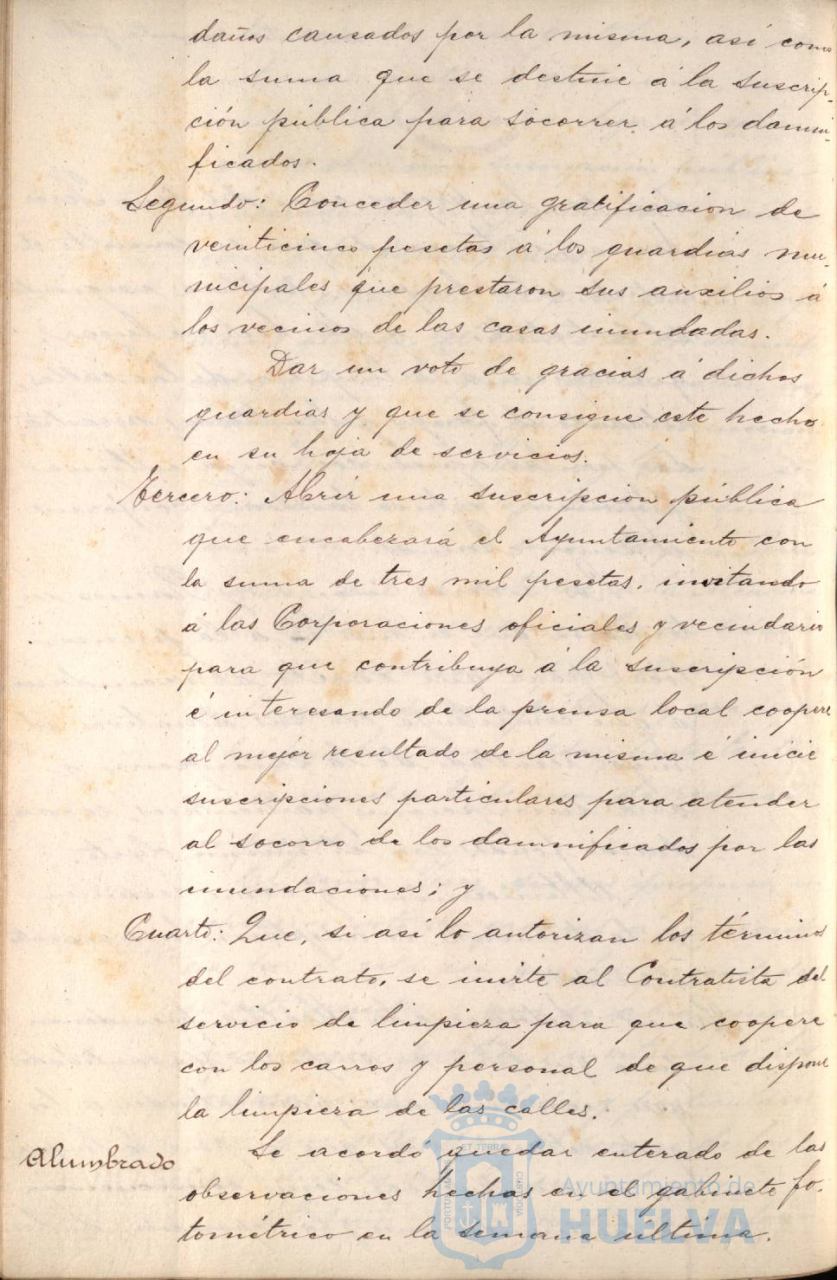 daños causados por la misma, así como
la suma que se destine á la suscrip-
ción pública para socorrer á los damni-
ficados.
Segundo: Conceder una gratificación de
veinticinco pesetas á los guardias mu-
nicipales que prestaron sus auxilios á
los vecinos de las casas inundadas.
Dar un voto de gracias á dichos
guardias y que se consigne este hecho
en su hoja de servicios.
Tercero: Abrir una suscripción pública
que encabezará el Ayuntamiento con
la suma de tres mil pesetas, invitando
á las Corporaciones oficiales y vecindario
para que contribuya á la suscripción
é interesando de la prensa local coopere
al mejor resultado de la misma é inicie
suscripciones particulares para atender
al socorro de los damnificados por las
inundaciones; y
Cuarto: Que, si así lo autorizan los términos
del contrato, se invite al Contratista del
servicio de limpieza para que coopere
con los carros y personal de que dispone
la limpieza de las calles.
Alumbrado Se acordó quedar enterado de las
observaciones hechas en el gabinete fo-
tométrico en la semana última.
Ayuntamiento de
HUELVA